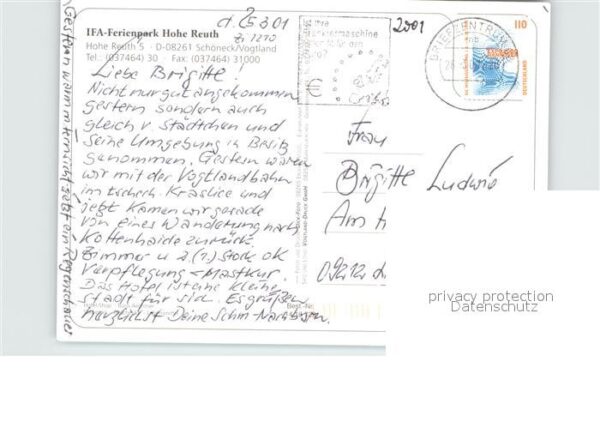 d. 25.3.01
Zi 1210
IFA-Ferienpark Hohe Reuth
Hohe Reuth 5 · D-08261 Schöneck/Vogtland
Tel.: (037464) 30 · Fax: (037464) 31000
Liebe Brigitte!
Nicht nur gut angekommen
gestern sondern auch
gleich v. Städtchen und
seine Umgebung in Besitz
genommen. Gestern waren
wir mit der Vogtlandbahn
im tschech. Kraslice und
jetzt kamen wir gerade
von einer Wanderung nach
Kottenheide zurück.
Zimmer u. 2.(?) Stock ok
Verpflegung = Mastkur.
Das Hotel ist eine kleine
Stadt für sich. Es grüßen
herzlichst Deine
Gestern warm
jetzt ein Regenschauer
2001
Ist Ihre
maschine
für den
€
BRIEFZENTRUM
110
DEUTSCHLAND
Frau
Brigitte Ludwig
Am
Best.-Nr.
privacy protection
Datenschutz